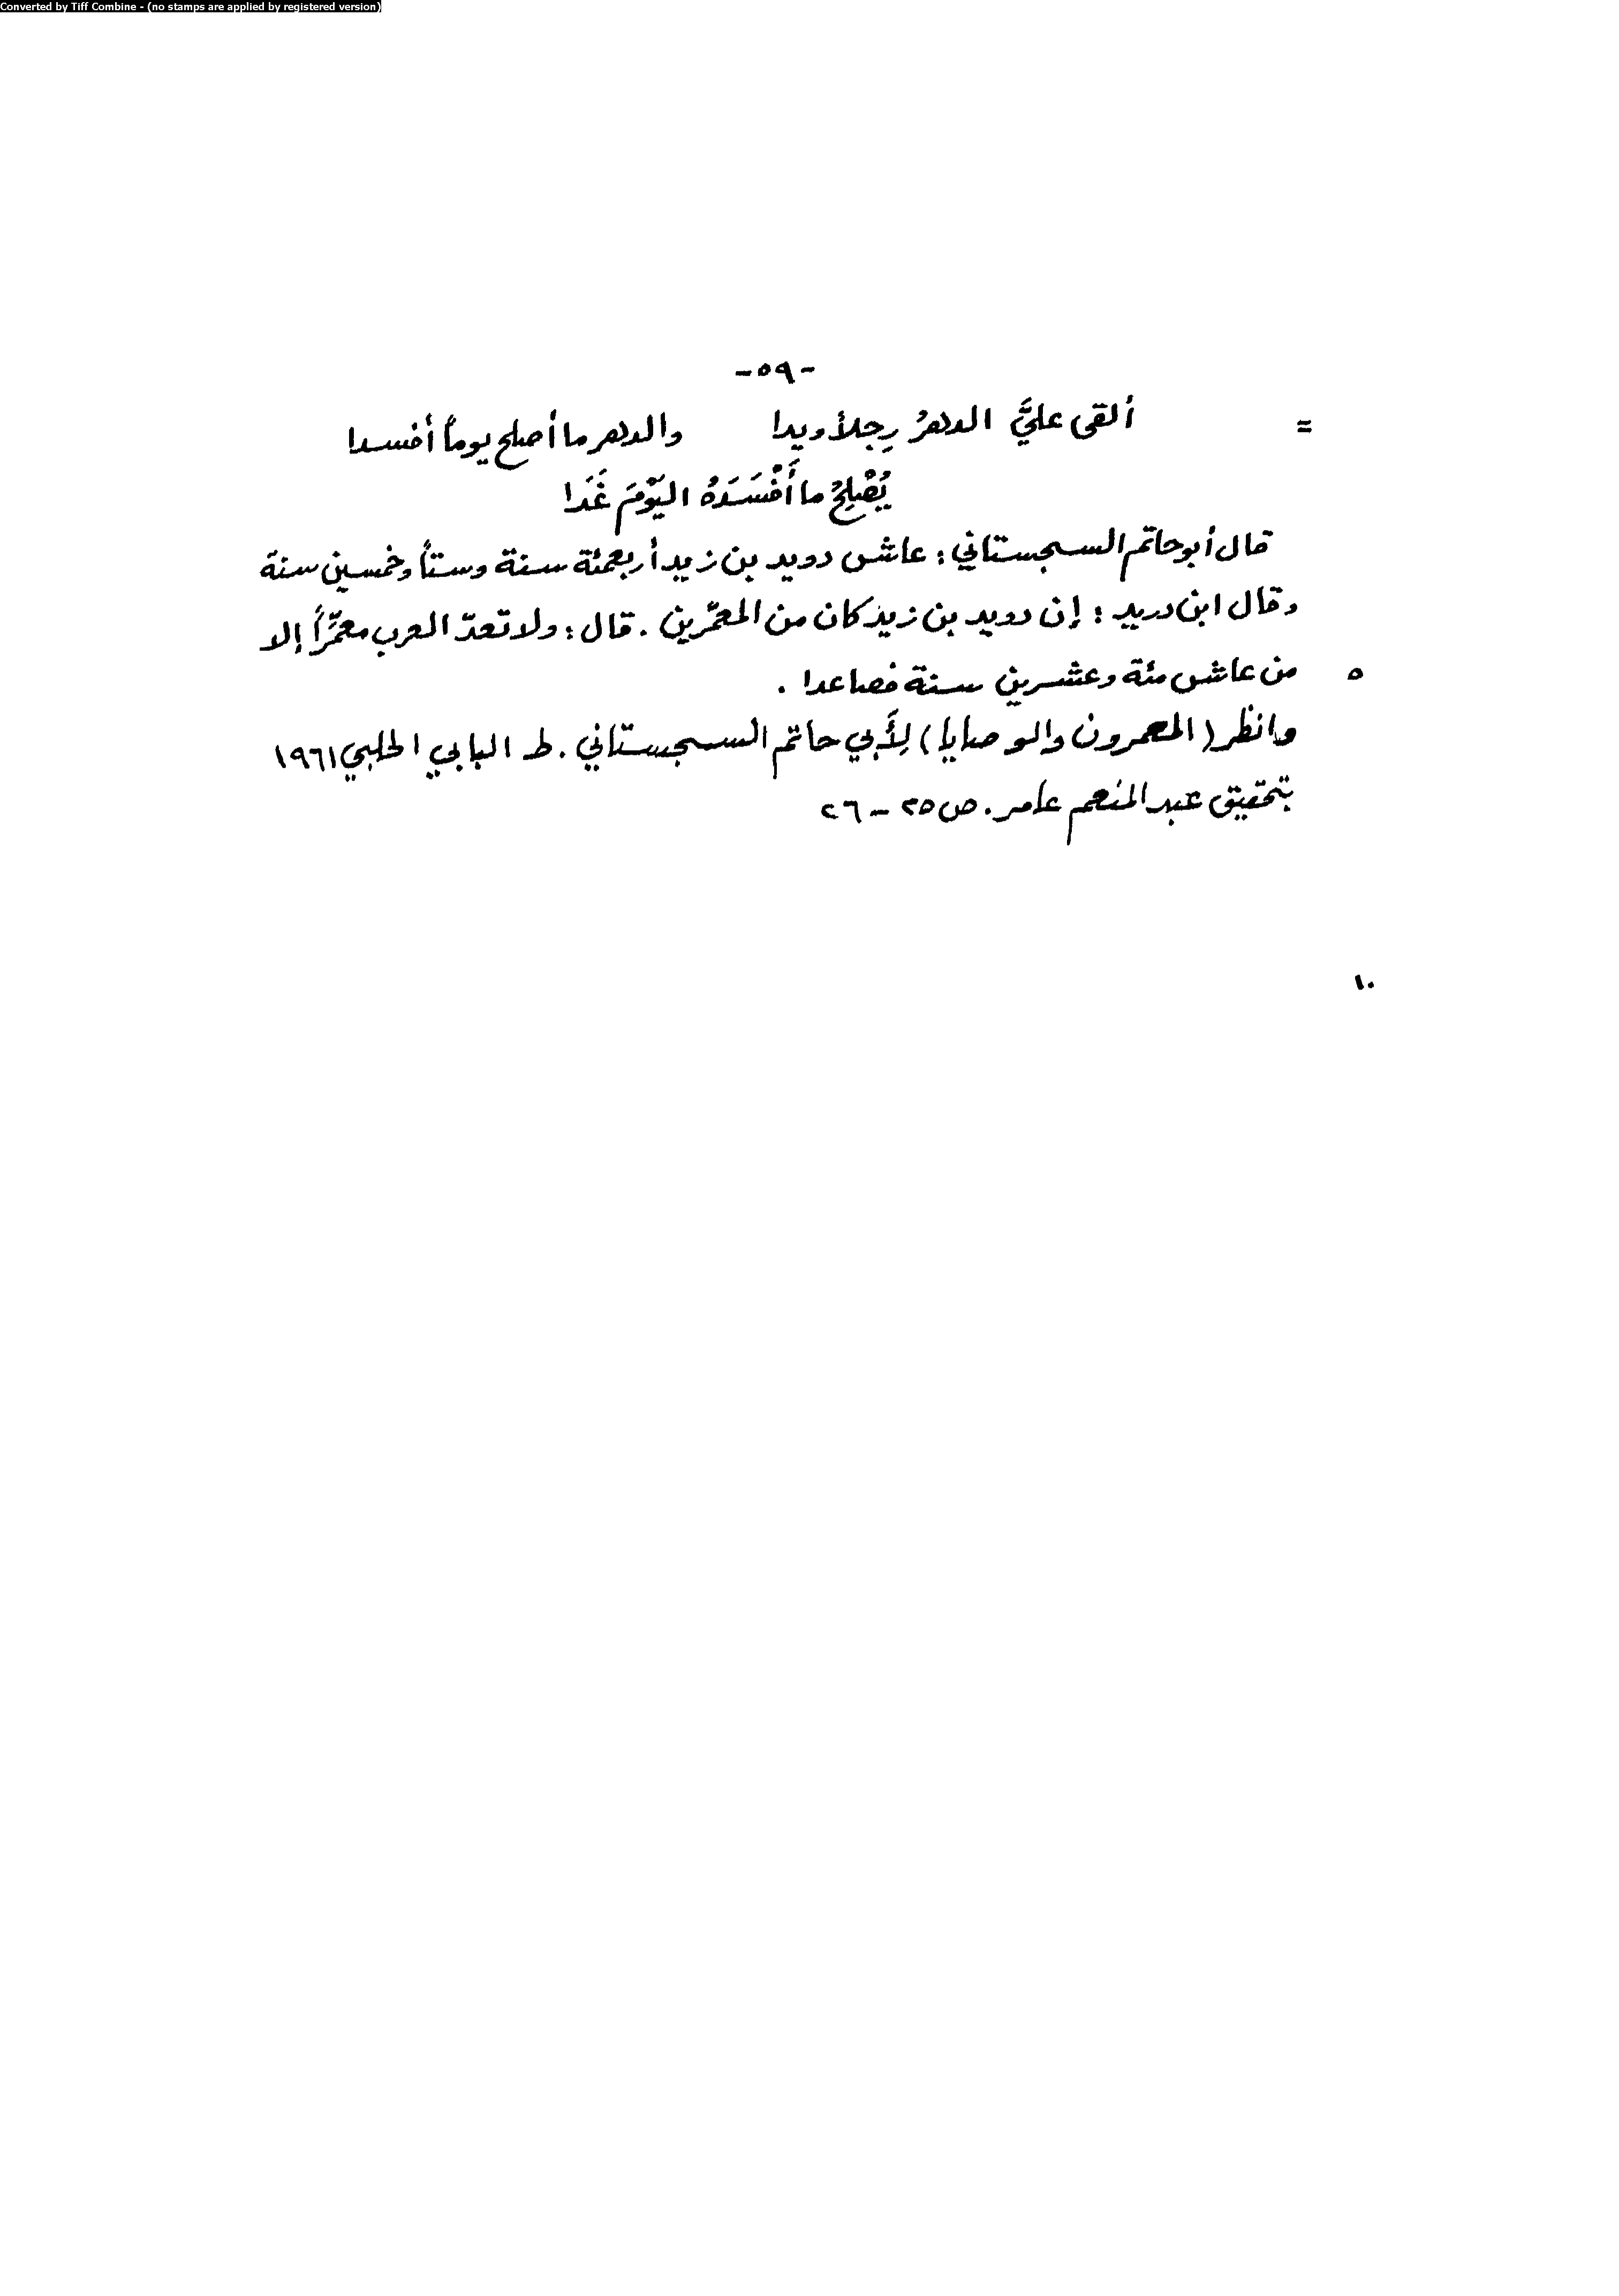 Converted by Tiff Combine - (no stamps are applied by registered version)
-٥٩-
= ألقى عليَّ الدهرُ رِجلاً ويدا والدهر ما أصلح يوماً أفسدا
يُصْلِحُ ما أَفْسَدَهُ اليَوْمَ غَدَا
قال أبو حاتم السجستاني : عاش دويد بن زيد أربعمئة سنة وستاً وخمسين سنة
وقال ابن دريد : إن دويد بن زيد كان من المعمّرين . قال : ولا تعدّ العرب معمَّراً إلا
٥ من عاش مئة وعشرين سنة فصاعدا .
وانظر ( المعمرون والوصايا ) لِأَبي حاتم السجستاني . ط البابي الحلبي ١٩٦١
بتحقيق عبد المنعم عامر . ص ٢٥ - ٢٦
١٠